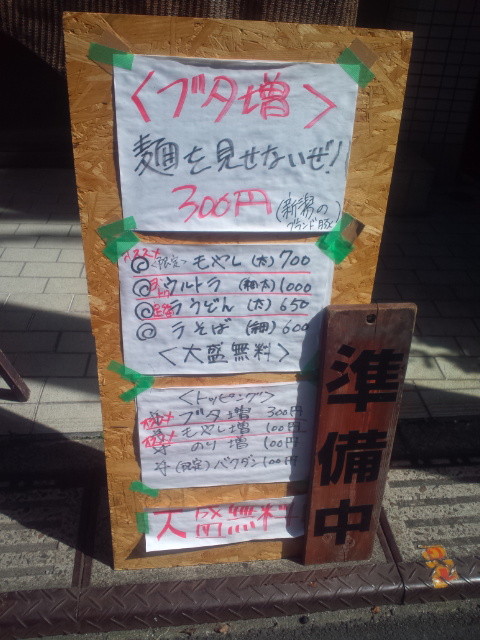 <ブタ増>
麺を見せないぜ!
300円
(新潟の
ブランド豚)
オススメ
<限定> モヤシ (太) 700
ウルトラ (極太) 1000
ラうどん (太) 650
ラそば (細) 600
<大盛無料>
<トッピング>
ブタ増 300円
モヤシ増 100円
のり増 100円
(限定) バクダン 100円
大盛無料
準備中